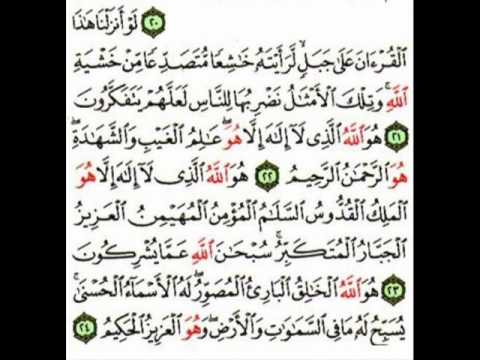 ٢٠ لَوْ أَنزَلْنَا هَٰذَا
ٱلْقُرْءَانَ عَلَىٰ جَبَلٍ لَّرَأَيْتَهُۥ خَٰشِعًا مُّتَصَدِّعًا مِّنْ خَشْيَةِ
ٱللَّهِۚ وَتِلْكَ ٱلْأَمْثَٰلُ نَضْرِبُهَا لِلنَّاسِ لَعَلَّهُمْ يَتَفَكَّرُونَ
٢١ هُوَ ٱللَّهُ ٱلَّذِى لَآ إِلَٰهَ إِلَّا هُوَۖ عَٰلِمُ ٱلْغَيْبِ وَٱلشَّهَٰدَةِۖ
هُوَ ٱلرَّحْمَٰنُ ٱلرَّحِيمُ ٢٢ هُوَ ٱللَّهُ ٱلَّذِى لَآ إِلَٰهَ إِلَّا هُوَ
ٱلْمَلِكُ ٱلْقُدُّوسُ ٱلسَّلَٰمُ ٱلْمُؤْمِنُ ٱلْمُهَيْمِنُ ٱلْعَزِيزُ
ٱلْجَبَّارُ ٱلْمُتَكَبِّرُۚ سُبْحَٰنَ ٱللَّهِ عَمَّا يُشْرِكُونَ
٢٣ هُوَ ٱللَّهُ ٱلْخَٰلِقُ ٱلْبَارِئُ ٱلْمُصَوِّرُۖ لَهُ ٱلْأَسْمَآءُ ٱلْحُسْنَىٰۚ
يُسَبِّحُ لَهُۥ مَا فِى ٱلسَّمَٰوَٰتِ وَٱلْأَرْضِۖ وَهُوَ ٱلْعَزِيزُ ٱلْحَكِيمُ ٢٤